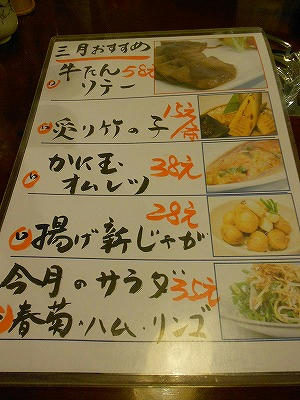 三月おすすめ
牛たん 58元
ソテー
炙り竹の子 15元
かに玉 38元
オムレツ
28元
揚げ新じゃが
今月のサラダ 35元
春菊・ハム・リンゴ